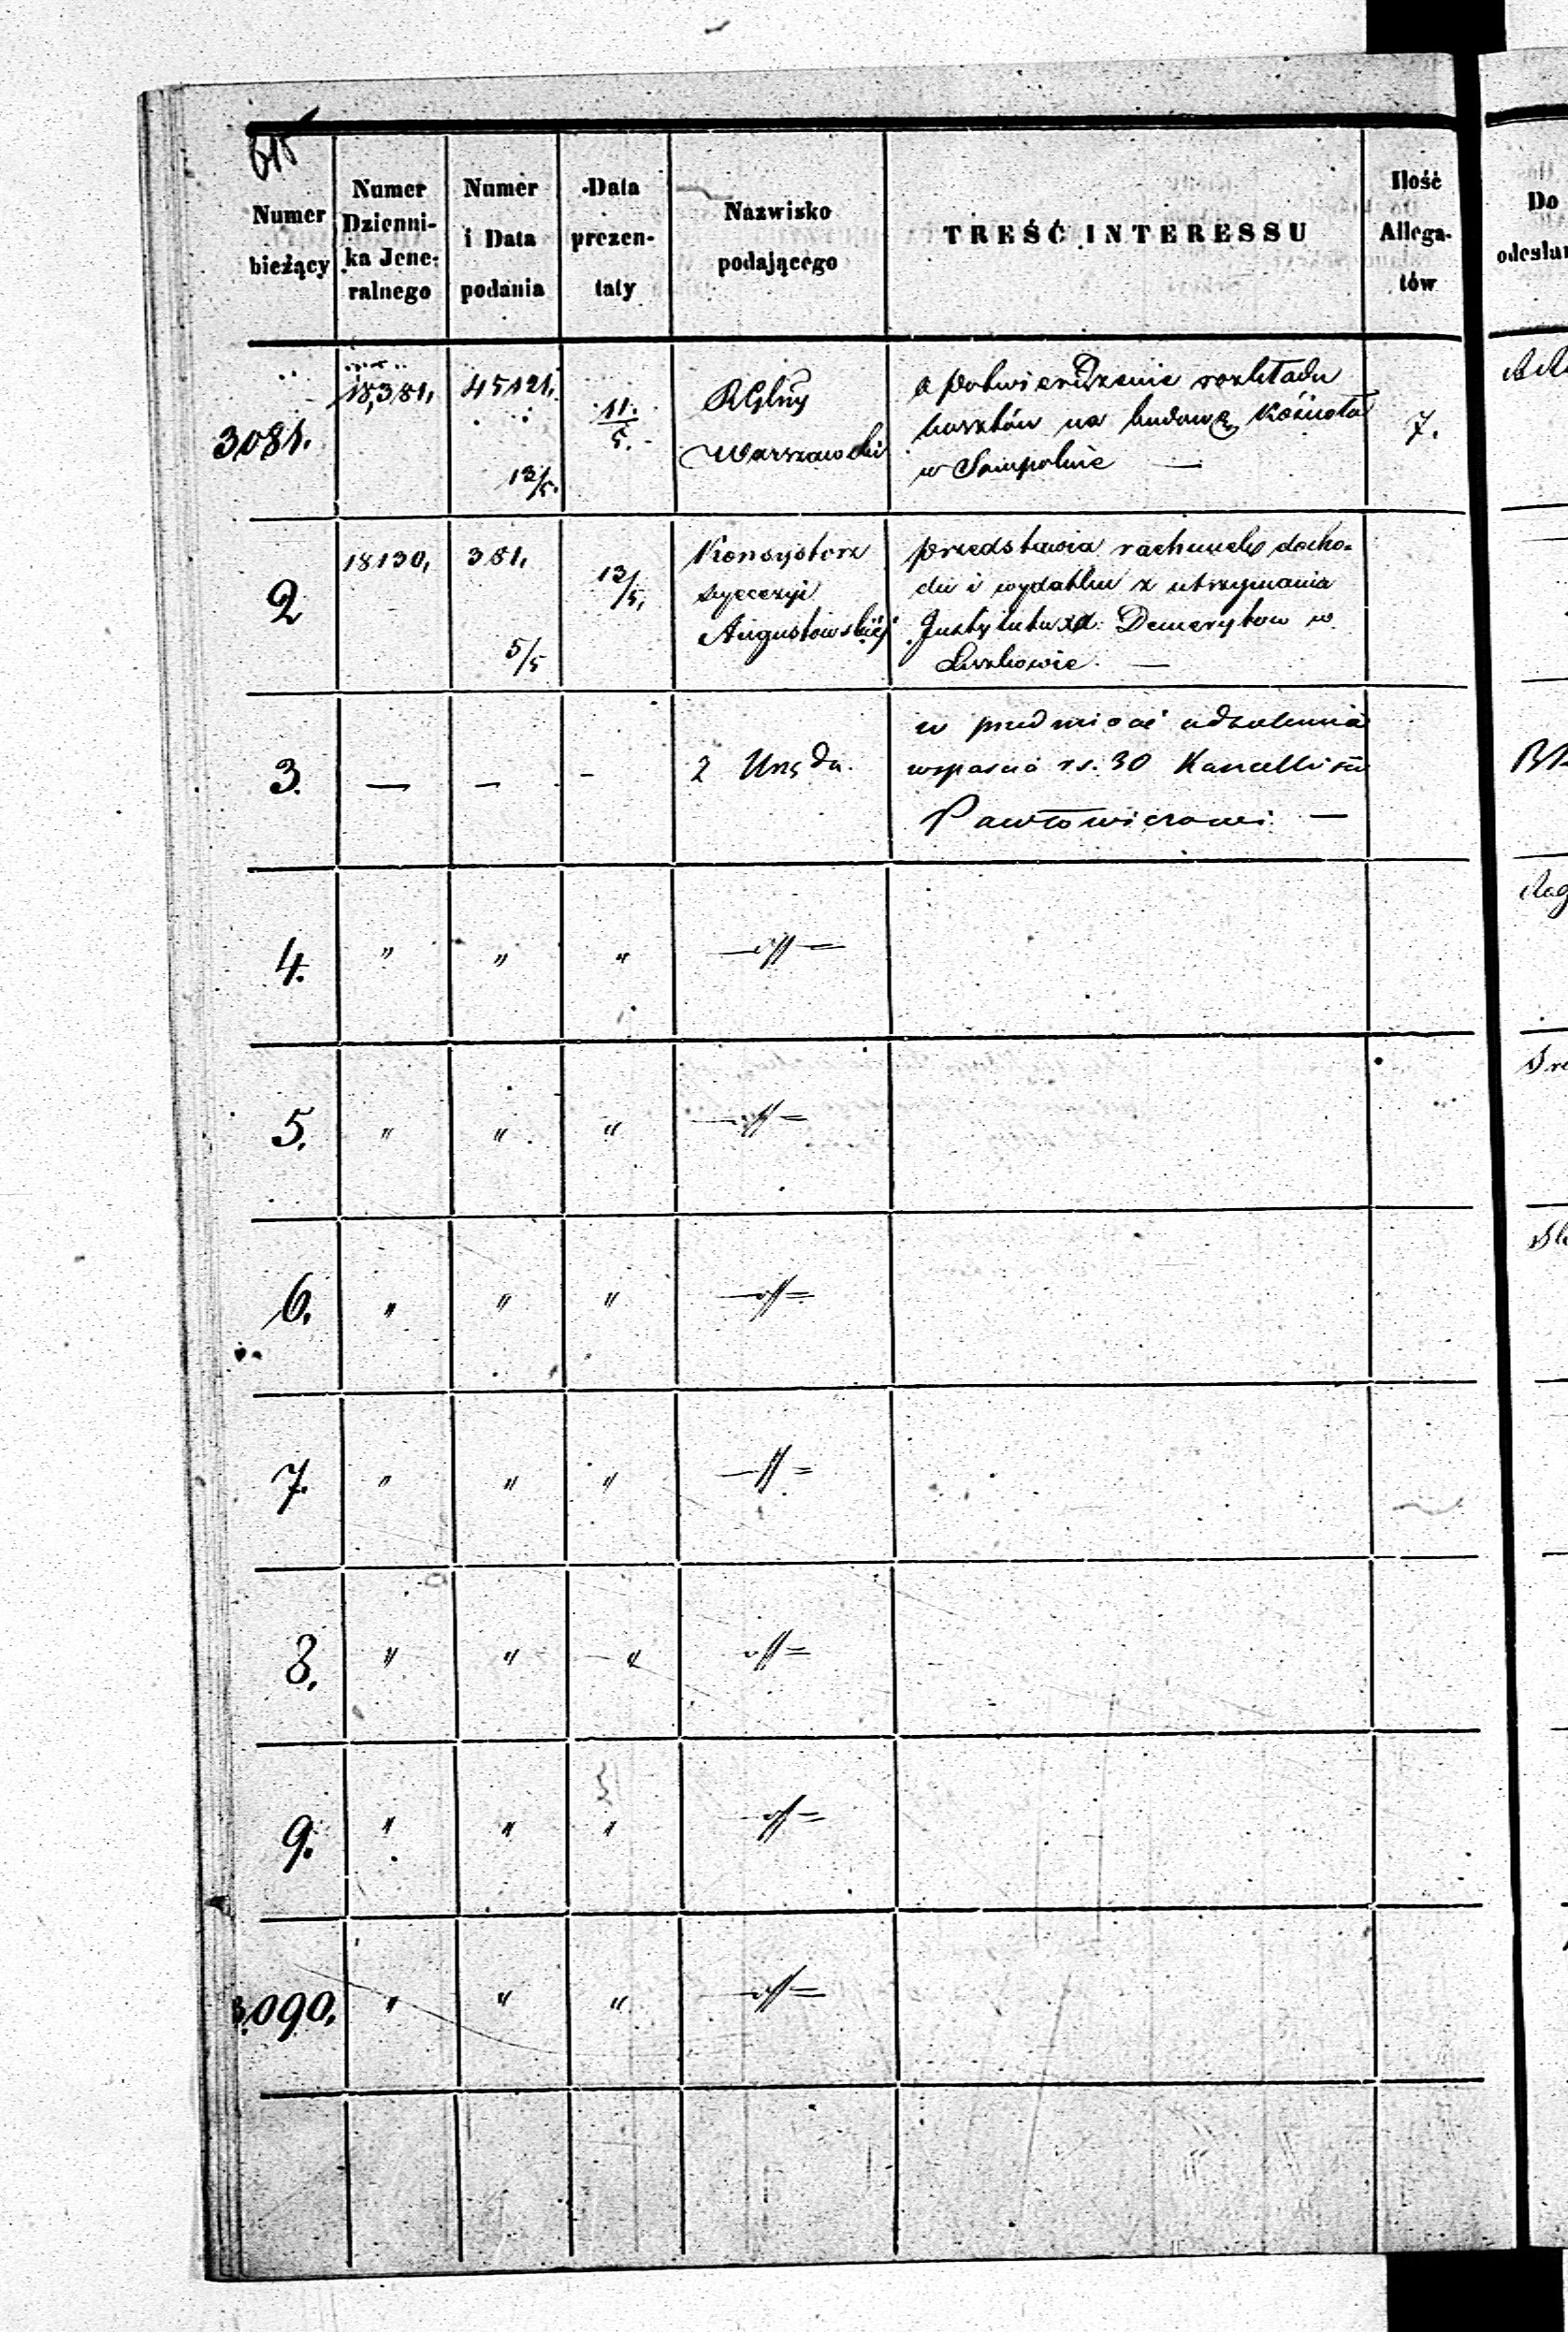 615
Numer bieżący
Numer Dzienni-ka Jene-ralnego
Numer i Data podania
Data prezen-taty
Nazwisko podającego
TREŚĆ INTERESSU
Ilość Allega-tów
Do odesłan
3081.
18,381,
45121.
13/5.
11./5.
RGlny
Warszawski
o potwierdzenie rozkładu
kosztów na budowę Kościoła
w Sompolnie —
7.
2
18130,
381,
5/5
13/5,
Konsystorz
dyecezyi
Augustowskiéj
przedstawia rachunek docho-
du i wydatku z utrzymania
Instytutu xx. Demerytow w
Liszkowie. —
3.
—
—
-
z Urzędu.
w przedmiocie udzielenia
wsparcia rs. 30 Kancelliście
Pawłowiczowi. —
4.
"
"
"
5.
"
"
"
6.
"
"
"
7.
"
"
"
8.
"
"
"
9.
"
"
"
3090.
"
"
"